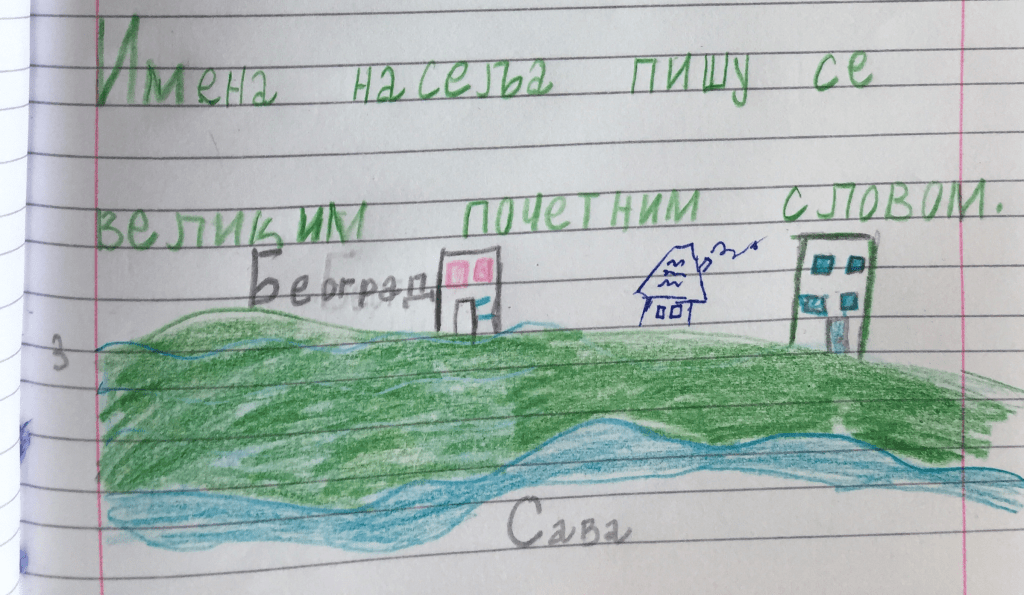 Имена насеља пишу се
великим почетним словом.
Београд
3
Сава